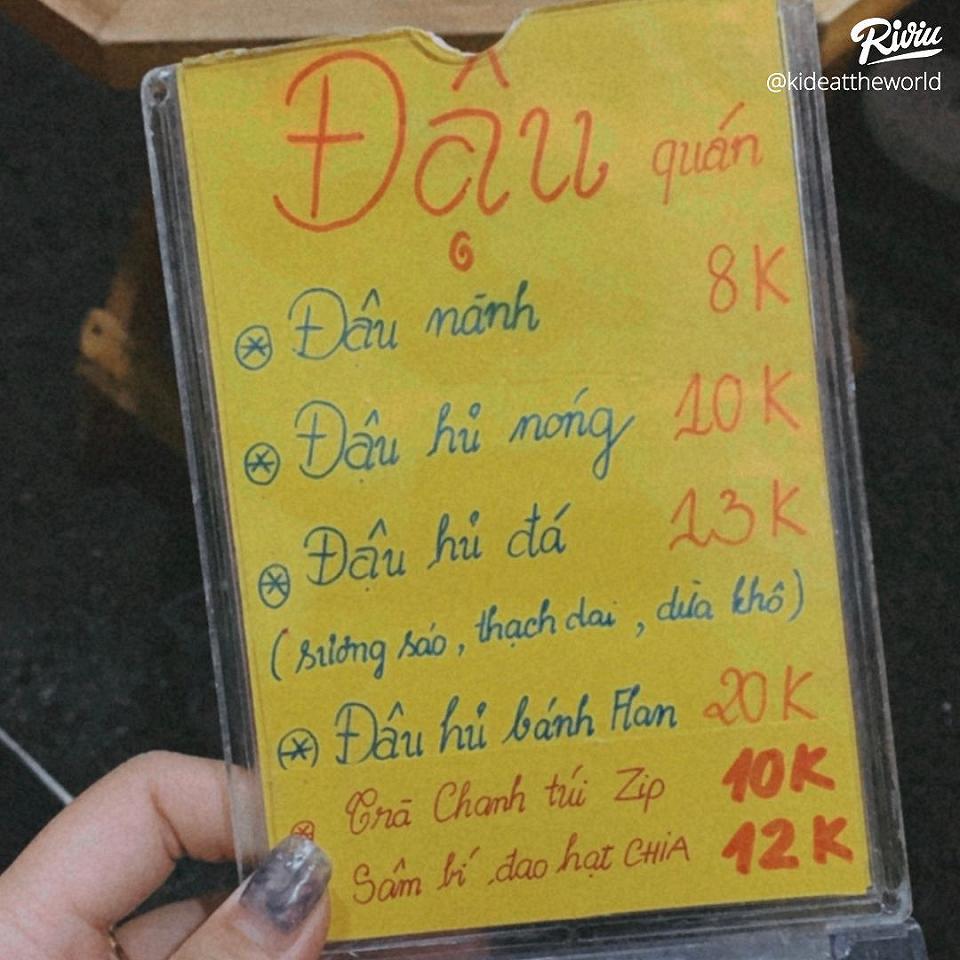 Riviu
@kideattheworld
Đậu quán
Đậu nành 8K
Đậu hủ nóng 10K
Đậu hủ đá 13K
(sương sáo, thạch dai, dừa khô)
Đậu hủ bánh Flan 20K
Trà Chanh túi Zip 10K
Sâm bí đao hạt CHIA 12K